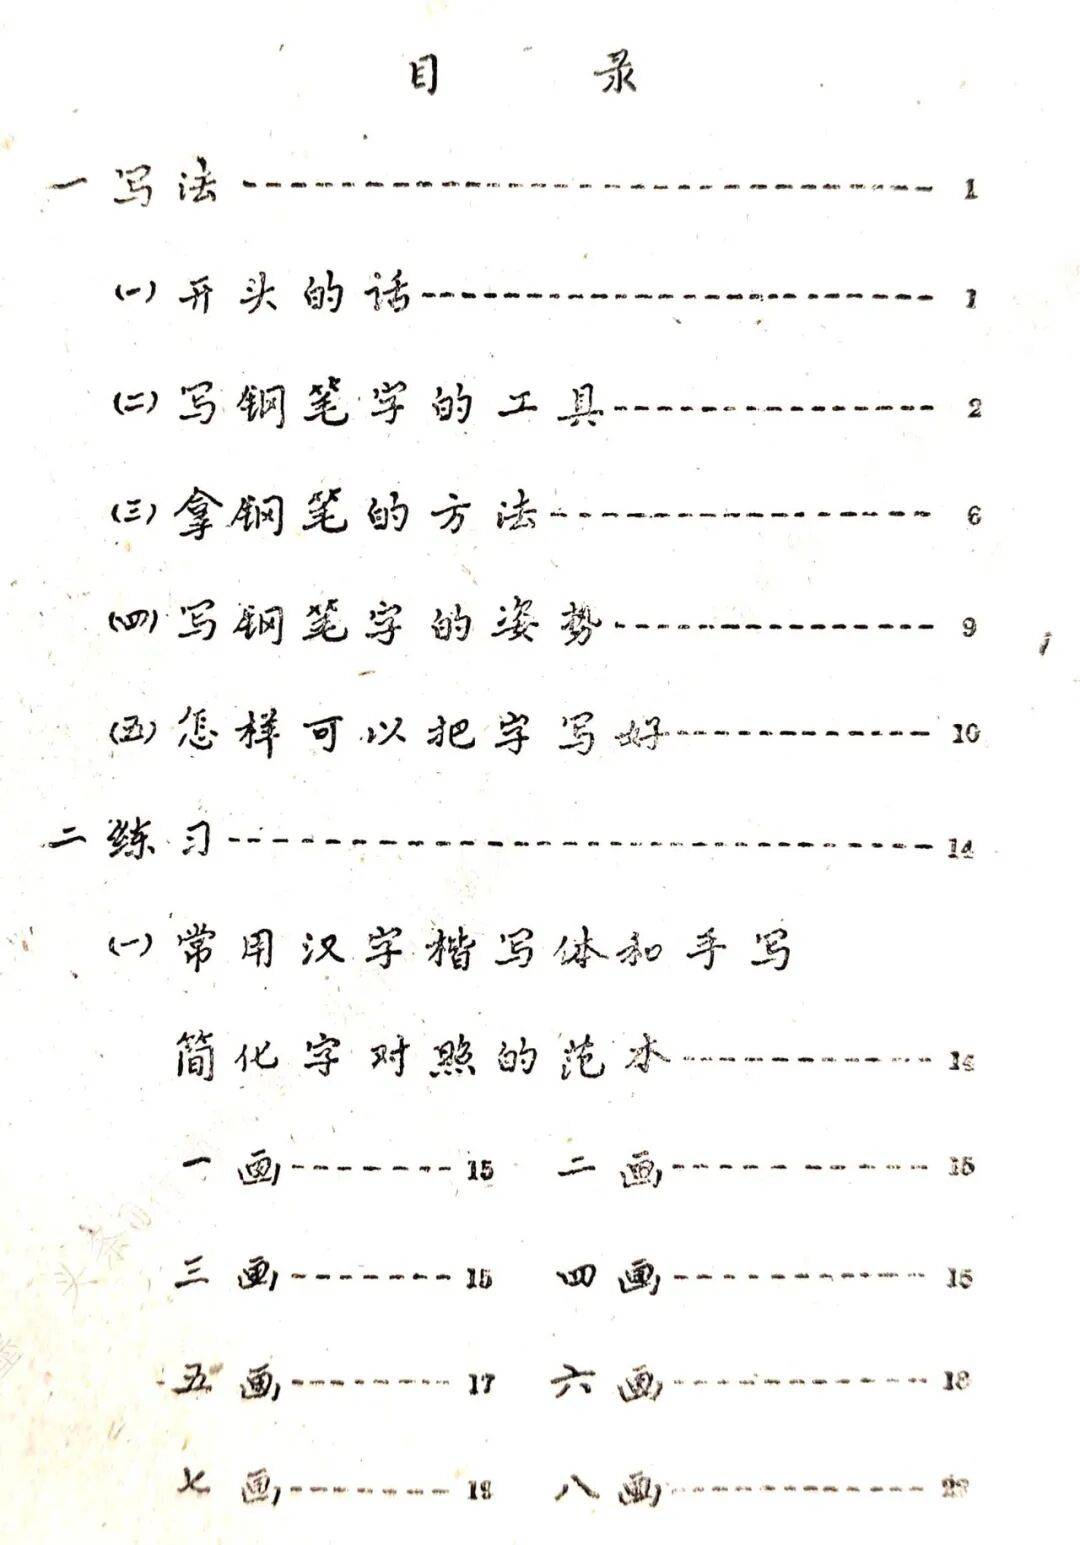 目 录
一 写法 1
(一) 开头的话 1
(二) 写钢笔字的工具 2
(三) 拿钢笔的方法 6
(四) 写钢笔字的姿势 9
(五) 怎样可以把字写好 10
二 练习 14
(一) 常用汉字楷写体和手写
简化字对照的范本 14
一画 15 二画 15
三画 15 四画
五画 17 六画 18
七画 八画